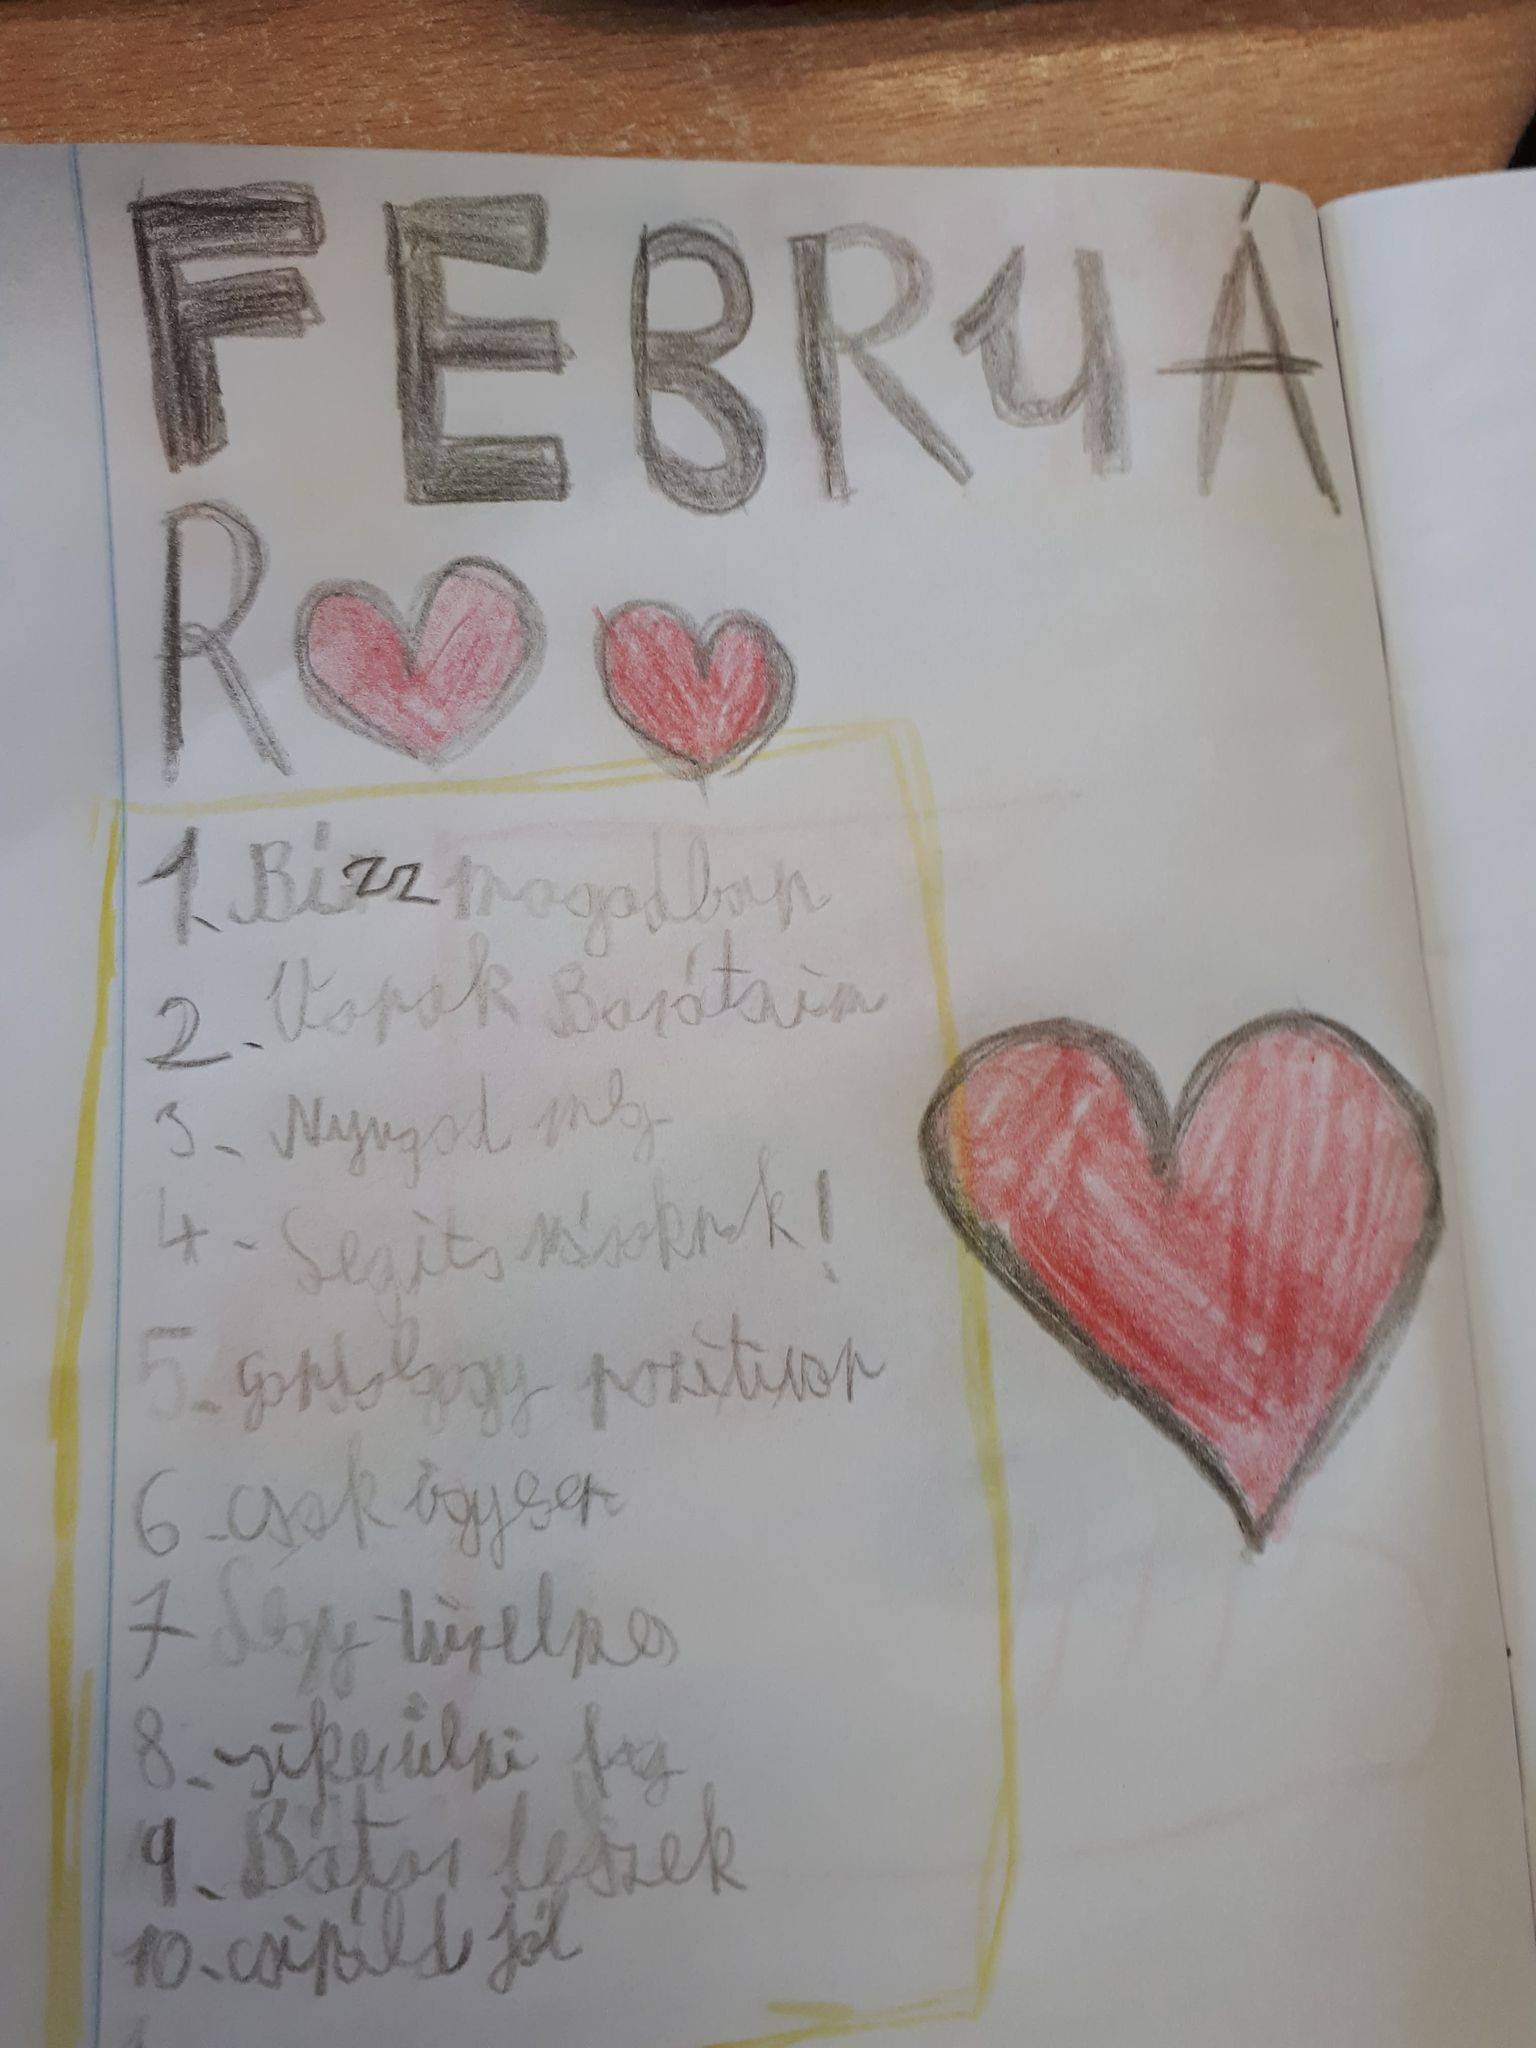 FEBRUÁ
R
1. Bizz magadban
2. Vanak Barátaim
3. Nyugod meg
4. Segíts másoknak!
5. gondolgogy pozitívan
6. csak ügyesen
7 Légy türelmes
8. sikerülni fog
9. Bátor leszek
10. csináld jól